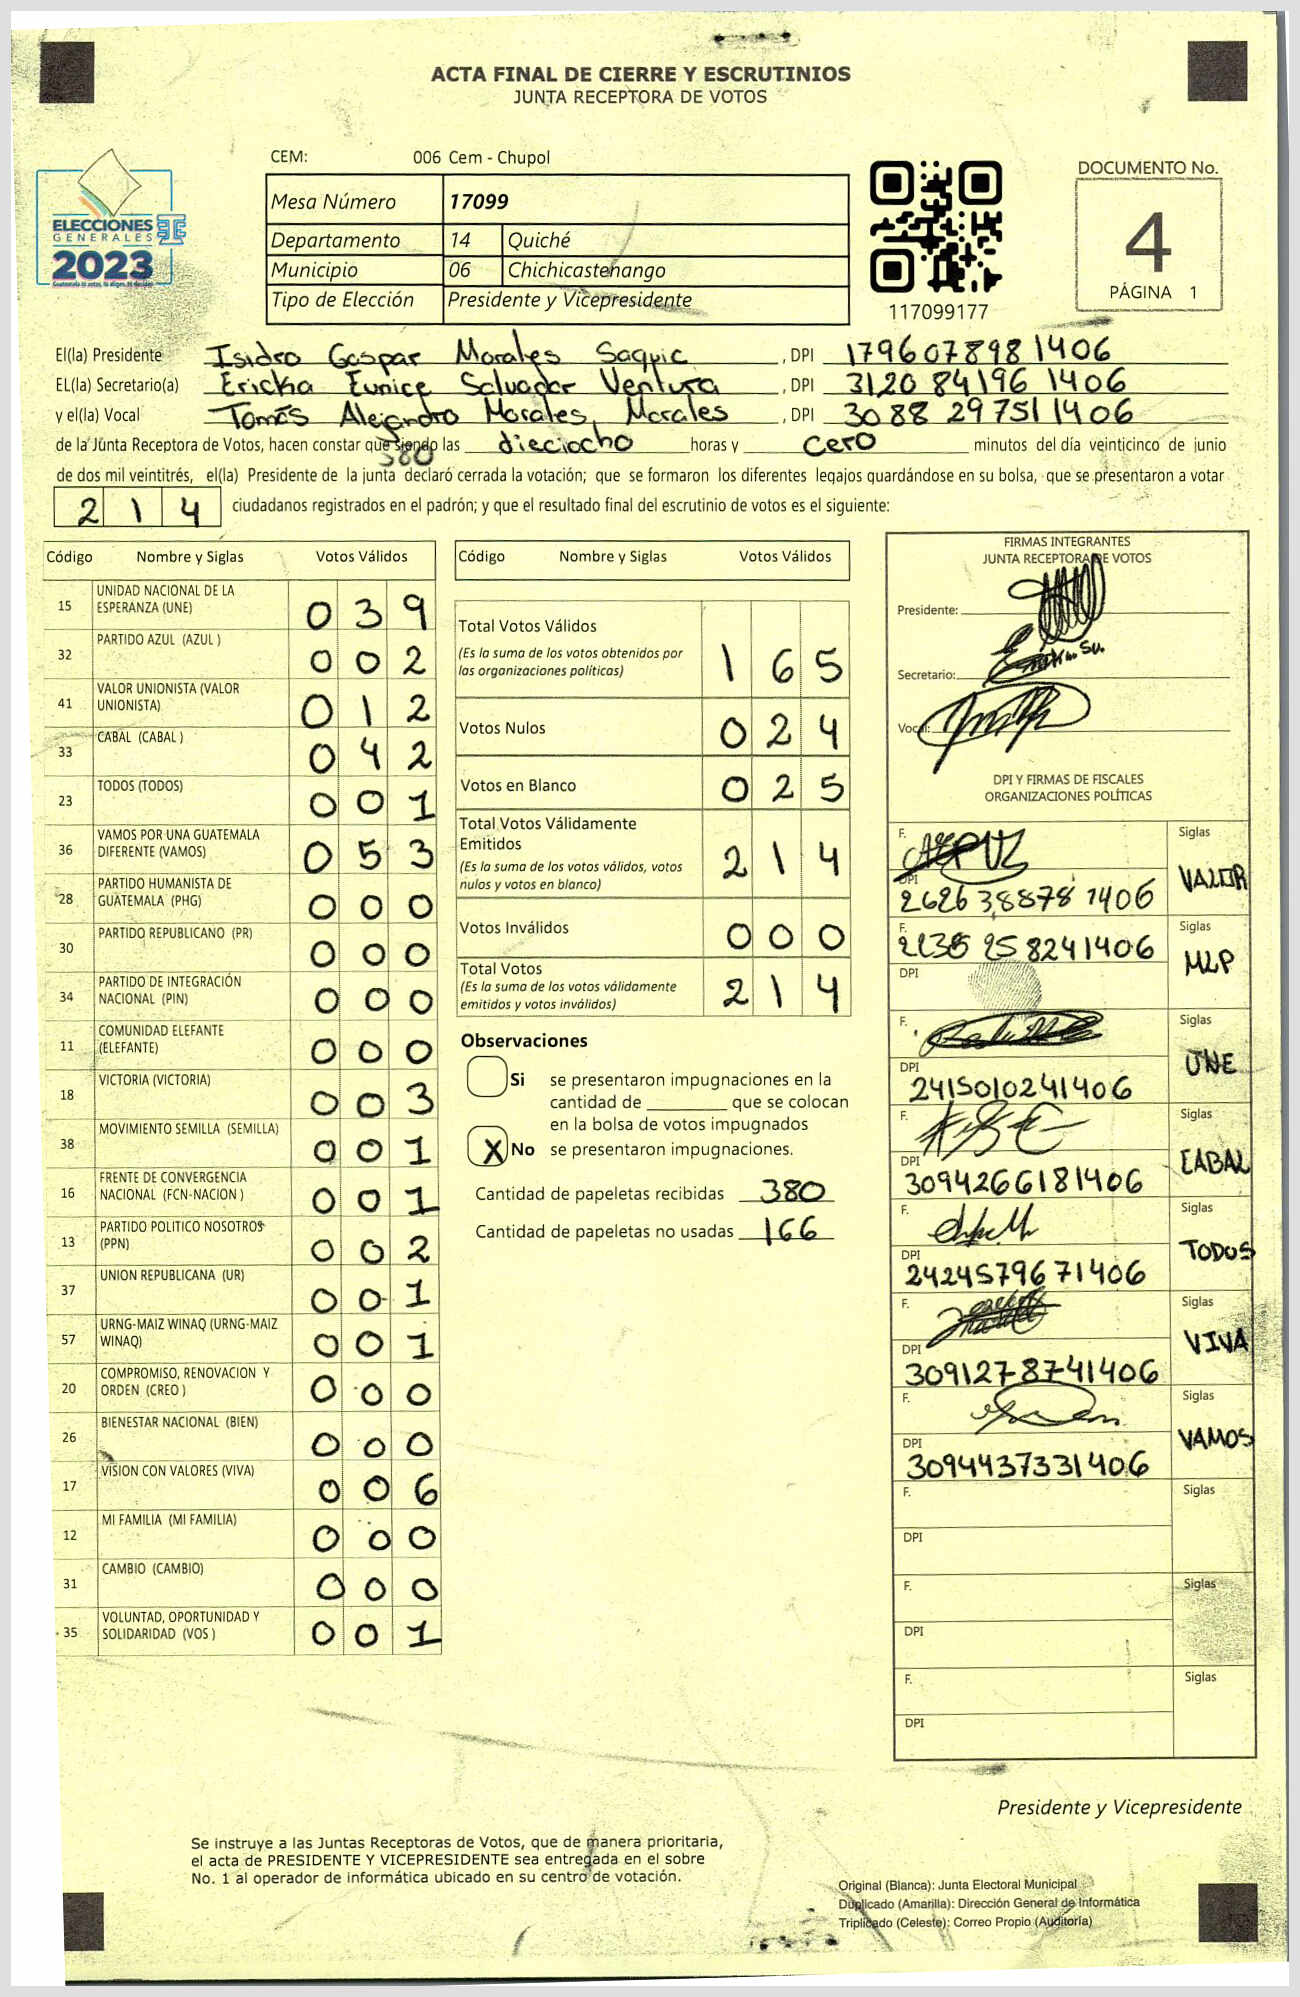 ACTA FINAL DE CIERRE Y ESCRUTINIOS
JUNTA RECEPTORA DE VOTOS
CEM: 006 Cem - Chupol
ELECCIONES
GENERALES
2023
Mesa Número 17099
Departamento 14 Quiché
Municipio 06 Chichicastenango
Tipo de Elección Presidente y Vicepresidente
117099177
DOCUMENTO No.
4
PÁGINA 1
El(la) Presidente Isidro Gaspar Morales Saquic, DPI 179607898 1406
EL(la) Secretario(a) Ericka Eunice Salvador Ventura, DPI 3120 84196 1406
y el(la) Vocal Tomás Alejandro Morales Morales, DPI 3088 29751 1406
de la Junta Receptora de Votos, hacen constar que siendo las dieciocho horas y cero minutos del día veinticinco de junio
380
de dos mil veintitrés, el(la) Presidente de la junta declaró cerrada la votación; que se formaron los diferentes legajos guardándose en su bolsa, que se presentaron a votar
214 ciudadanos registrados en el padrón; y que el resultado final del escrutinio de votos es el siguiente:
Código Nombre y Siglas Votos Válidos
15 UNIDAD NACIONAL DE LA ESPERANZA (UNE) 039
32 PARTIDO AZUL (AZUL ) 002
41 VALOR UNIONISTA (VALOR UNIONISTA) 012
33 CABAL (CABAL ) 042
23 TODOS (TODOS) 001
36 VAMOS POR UNA GUATEMALA DIFERENTE (VAMOS) 053
28 PARTIDO HUMANISTA DE GUATEMALA (PHG) 000
30 PARTIDO REPUBLICANO (PR) 000
34 PARTIDO DE INTEGRACIÓN NACIONAL (PIN) 000
11 COMUNIDAD ELEFANTE (ELEFANTE) 000
18 VICTORIA (VICTORIA) 003
38 MOVIMIENTO SEMILLA (SEMILLA) 001
16 FRENTE DE CONVERGENCIA NACIONAL (FCN-NACION ) 001
13 PARTIDO POLITICO NOSOTROS (PPN) 002
37 UNION REPUBLICANA (UR) 001
57 URNG-MAIZ WINAQ (URNG-MAIZ WINAQ) 001
20 COMPROMISO, RENOVACION Y ORDEN (CREO ) 000
26 BIENESTAR NACIONAL (BIEN) 000
17 VISION CON VALORES (VIVA) 006
12 MI FAMILIA (MI FAMILIA) 000
31 CAMBIO (CAMBIO) 000
35 VOLUNTAD, OPORTUNIDAD Y SOLIDARIDAD (VOS ) 001
Código Nombre y Siglas Votos Válidos
Total Votos Válidos
(Es la suma de los votos obtenidos por las organizaciones políticas) 165
Votos Nulos 024
Votos en Blanco 025
Total Votos Válidamente Emitidos
(Es la suma de los votos válidos, votos nulos y votos en blanco) 214
Votos Inválidos 000
Total Votos
(Es la suma de los votos válidamente emitidos y votos inválidos) 214
Observaciones
Si se presentaron impugnaciones en la
cantidad de ________ que se colocan
en la bolsa de votos impugnados
X No se presentaron impugnaciones.
Cantidad de papeletas recibidas 380
Cantidad de papeletas no usadas 166
FIRMAS INTEGRANTES
JUNTA RECEPTORA DE VOTOS
Presidente:
Secretario:
Vocal:
DPI Y FIRMAS DE FISCALES
ORGANIZACIONES POLÍTICAS
F. Siglas VALOR
DPI 2626 38878 1406
F. 2238 25 8241406 Siglas MLP
DPI
F. Siglas UNE
DPI 2415010241406
F. Siglas CABAL
DPI 3094266181406
F. Siglas TODOS
DPI 2424579671406
F. Siglas VIVA
DPI 3091278741406
F. Siglas VAMOS
DPI 3094437331406
F. Siglas
DPI
F. Siglas
DPI
F. Siglas
DPI
Presidente y Vicepresidente
Se instruye a las Juntas Receptoras de Votos, que de manera prioritaria,
el acta de PRESIDENTE Y VICEPRESIDENTE sea entregada en el sobre
No. 1 al operador de informática ubicado en su centro de votación.
Original (Blanca): Junta Electoral Municipal
Duplicado (Amarilla): Dirección General de Informática
Triplicado (Celeste): Correo Propio (Auditoría)